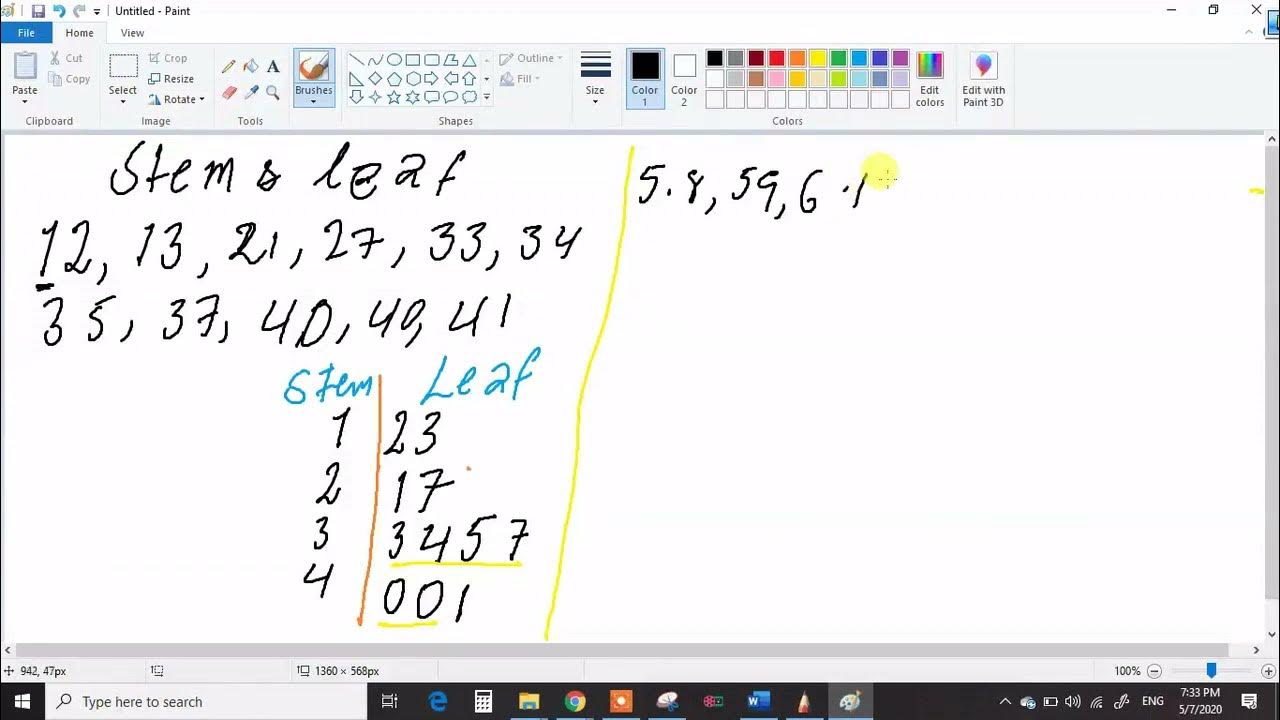 Untitled - Paint
File Home View
Paste Cut Copy Clipboard
Select Crop Resize Rotate Image
Tools
Brushes
Outline Fill Shapes
Size
Color 1 Color 2 Edit colors Colors
Edit with Paint 3D
Stem & leaf
12, 13, 21, 27, 33, 34
35, 37, 40, 40, 41
Stem Leaf
1 23
2 17
3 3457
4 001
5.8, 59, 6.1
942, 47px 1360 × 568px 100%
Type here to search
W
ENG 7:33 PM
5/7/2020